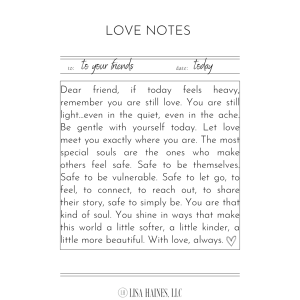 LOVE NOTES
to: to your friends date: today
Dear friend, if today feels heavy,
remember you are still love. You are still
light...even in the quiet, even in the ache.
Be gentle with yourself today. Let love
meet you exactly where you are. The most
special souls are the ones who make
others feel safe. Safe to be themselves.
Safe to be vulnerable. Safe to let go, to
feel, to connect, to reach out, to share
their story, safe to simply be. You are that
kind of soul. You shine in ways that make
this world a little softer, a little kinder, a
little more beautiful. With love, always.
LH LISA HAINES, LLC